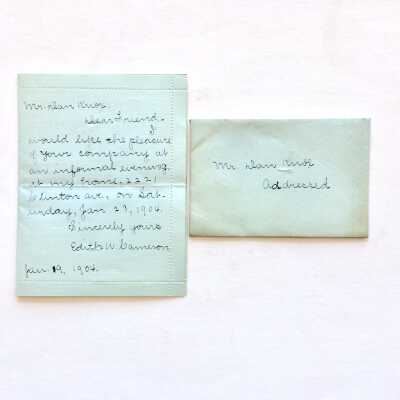 Mr. Dan Knox.
Dear Friend,
I
would like the pleasure
of your company at
an informal evening,
at my home, 2221
Clinton ave, on Sat-
urday, Jan 23, 1904.
Sincerely yours
Edith W. Cameron
Jan 19, 1904.
Mr. Dan Knox
Addressed